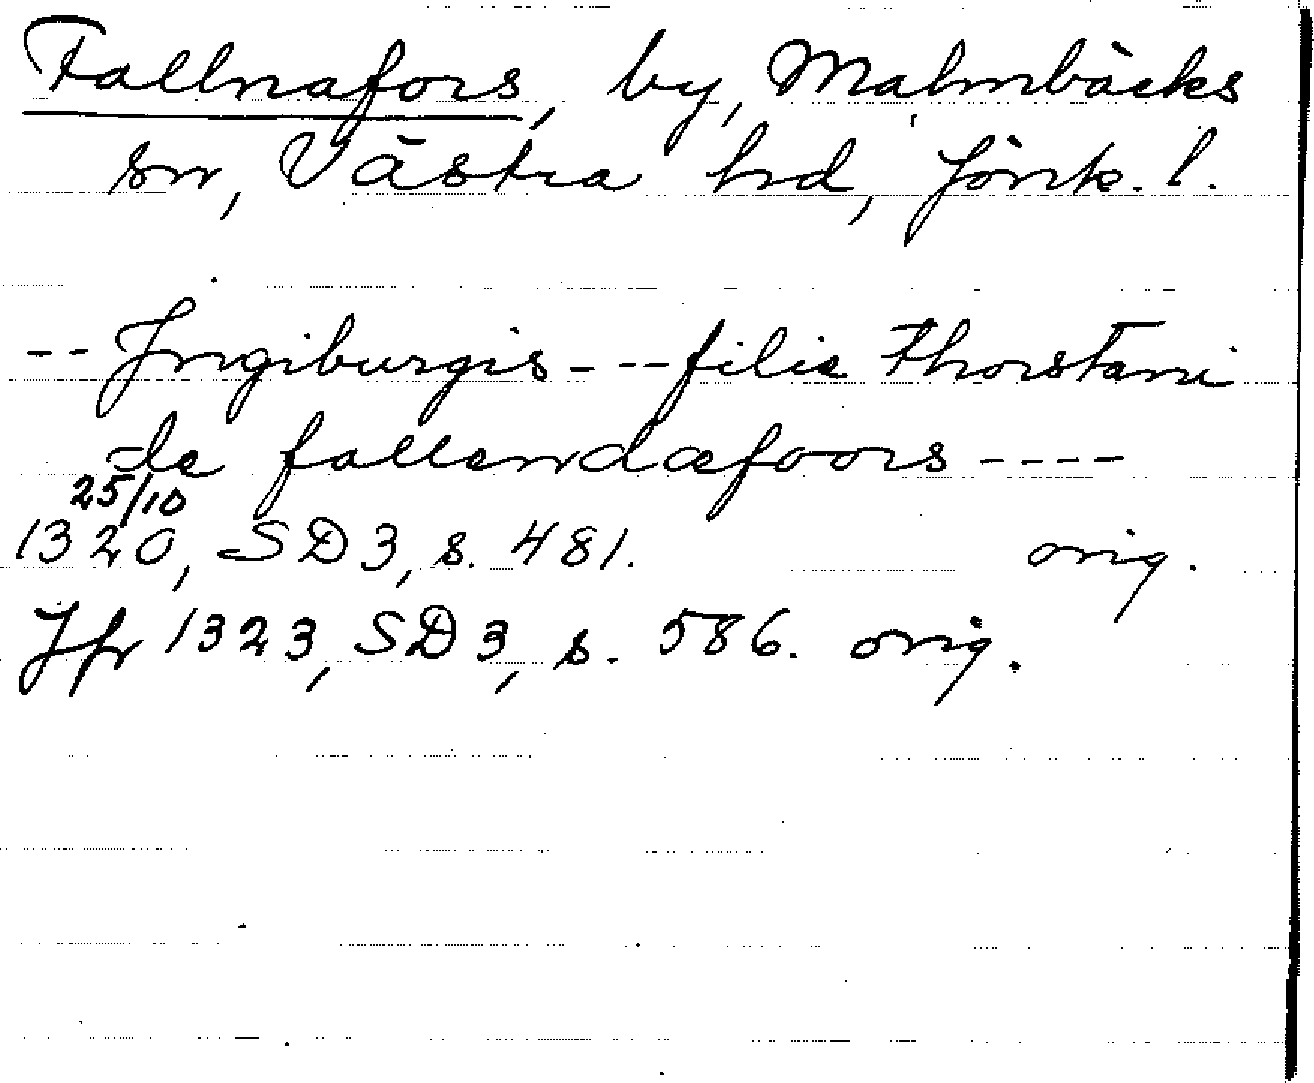 Fallnafors, by, Malmbäcks
sn, Västra hd, Jönk. l.
-- Jngiburgis --- filia Thorstani
de fallendæfoors ----
25/10
1320, SD3, s. 481. orig.
Jfr 1323, SD3, s. 586. orig.